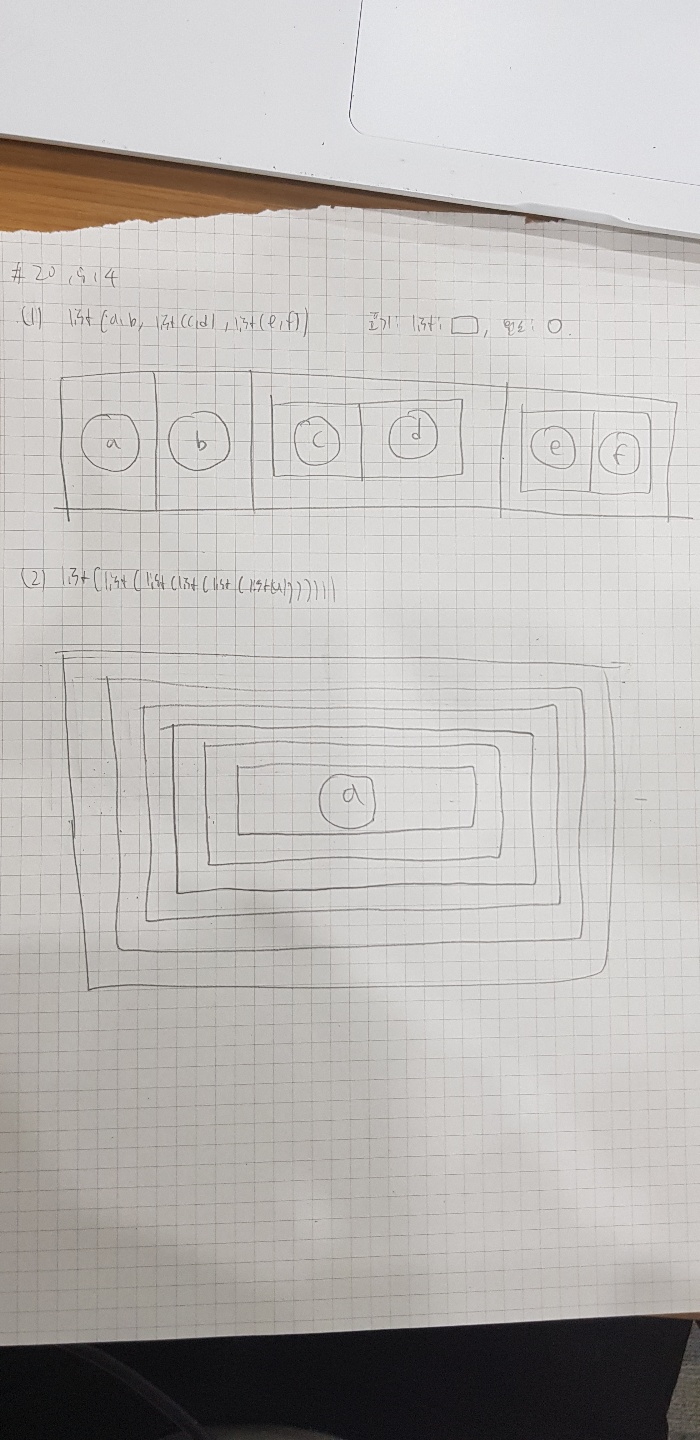 #20.5.4
(1) list(a,b, list(c,d), list(e,f)) 표기: list: □, 원소: ○.
a b c d e f
(2) list(list(list(list(list(list(a))))))
a